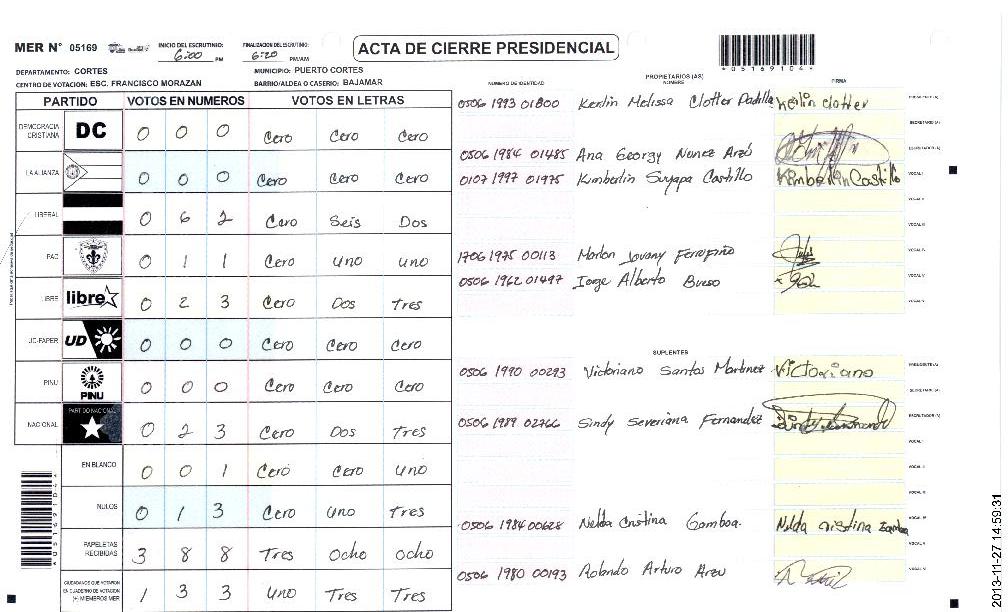 MER N° 05169 INICIO DEL ESCRUTINIO: 6:00 PM FINALIZACION DEL ESCRUTINIO: 6:20 PM/AM
ACTA DE CIERRE PRESIDENCIAL
0 5 1 6 9 1 0 4
DEPARTAMENTO: CORTES MUNICIPIO: PUERTO CORTES
CENTRO DE VOTACION: ESC. FRANCISCO MORAZAN BARRIO/ALDEA O CASERIO: BAJAMAR
PARTIDO VOTOS EN NUMEROS VOTOS EN LETRAS
DEMOCRACIA CRISTIANA DC 0 0 0 Cero Cero Cero
LA ALIANZA 0 0 0 Cero Cero Cero
LIBERAL 0 6 2 Cero Seis Dos
PAC 0 1 1 Cero uno uno
LIBRE libre 0 2 3 Cero Dos Tres
UD-FAPER UD 0 0 0 Cero Cero Cero
PINU PINU 0 0 0 Cero Cero Cero
NACIONAL PARTIDO NACIONAL 0 2 3 Cero Dos Tres
EN BLANCO 0 0 1 Cero Cero Uno
NULOS 0 1 3 Cero Uno Tres
PAPELETAS RECIBIDAS 3 8 8 Tres Ocho Ocho
CIUDADANOS QUE VOTARON EN CUADERNO DE VOTACION (+) MIEMBROS MER 1 3 3 Uno Tres Tres
NUMERO DE IDENTIDAD PROPIETARIOS (AS) NOMBRE FIRMA
0506 1993 01800 Kerlin Melissa Clotter Padilla Kerlin clotter PRESIDENTE (A)
SECRETARIO (A)
0506 1984 01485 Ana Georgy Nunez Arzú ESCRUTADOR (A)
0107 1997 01975 Kimberlin Suyapa Castillo Kimberlin Castillo VOCAL I
VOCAL II
VOCAL III
1706 1975 00113 Marlon Jovany VOCAL IV
0506 1962 01497 Jorge Alberto Bueso VOCAL V
VOCAL VI
SUPLENTES
0506 1990 00293 Victoriano Santos Martinez Victoriano PRESIDENTE (A)
SECRETARIO (A)
0506 1989 02766 Sindy Severiana Fernandez ESCRUTADOR (A)
VOCAL I
VOCAL II
VOCAL III
0506 1984 00628 Nelda Cristina Gamboa. Nelda cristina Gamboa VOCAL IV
VOCAL V
0506 1980 00193 Rolando Arturo Arzu VOCAL VI
2013-11-27 14:59:31